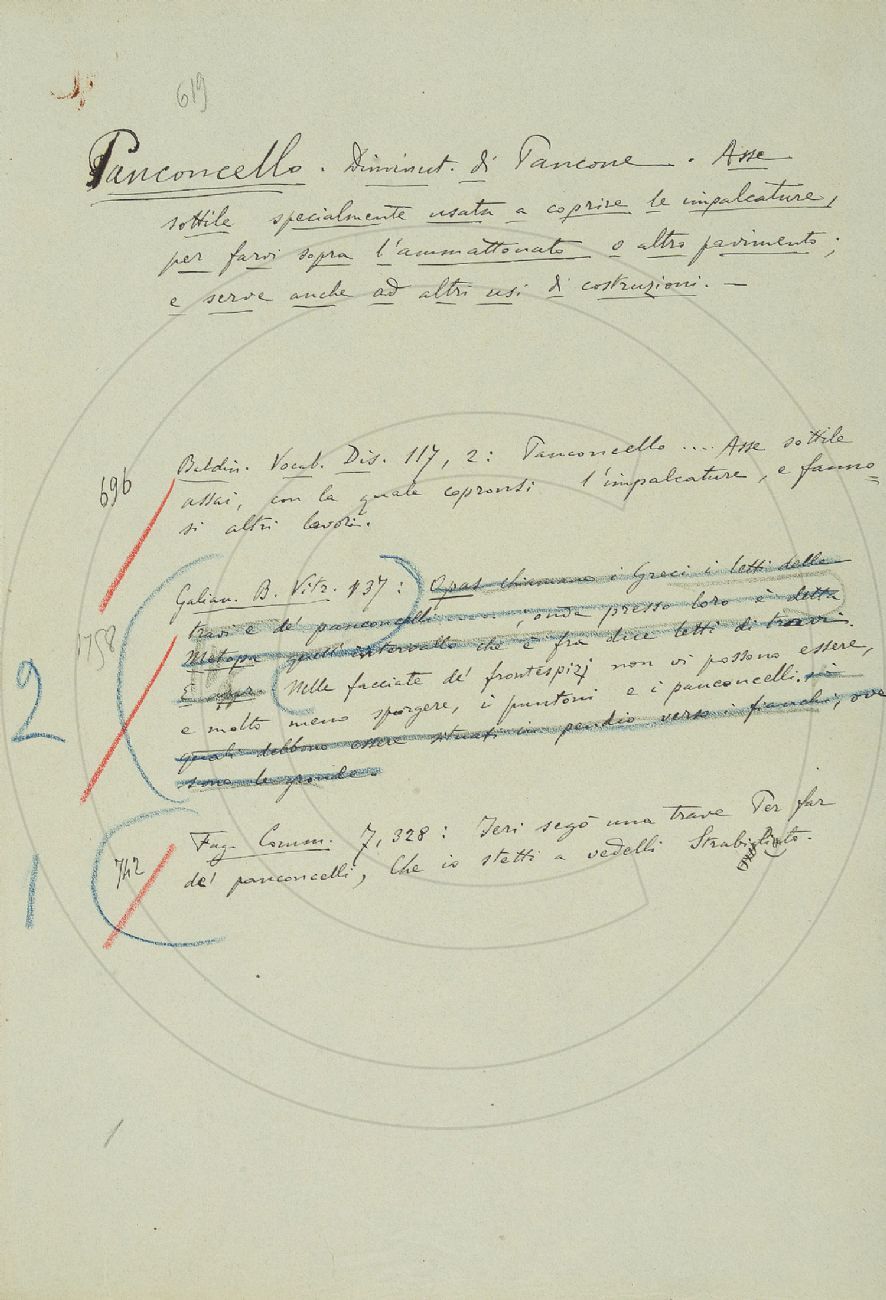 619
Panconcello. Diminut. di Pancone. Asse
sottile specialmente usata a coprire le impalcature,
per farvi sopra l'ammattonato o altro pavimento;
e serve anche ad altri usi di costruzioni. —
696
Baldin. Vocab. Dis. 117, 2: Panconcello .... Asse sottile
assai, con la quale copronsi l'impalcature, e fanno=
si altri lavori.
1758
Galian. B. Vitr. 137: Opas chiamano i Greci i letti delle
travi e de' panconcelli ....; onde presso loro è detto
Metopa quell'intervallo che è fra due letti di travi.
E appr. Nelle facciate de' frontespizj non vi possono essere,
e molto meno sporgere, i puntoni e i panconcelli,
quali debbono essere situati in pendio verso i fianchi, ove
sono le gronde.
2
742
Fag. Comm. 7, 328: Ieri segò una trave Per far
de' panconcelli, Che io stetti a vedelli Strabiliato.
1